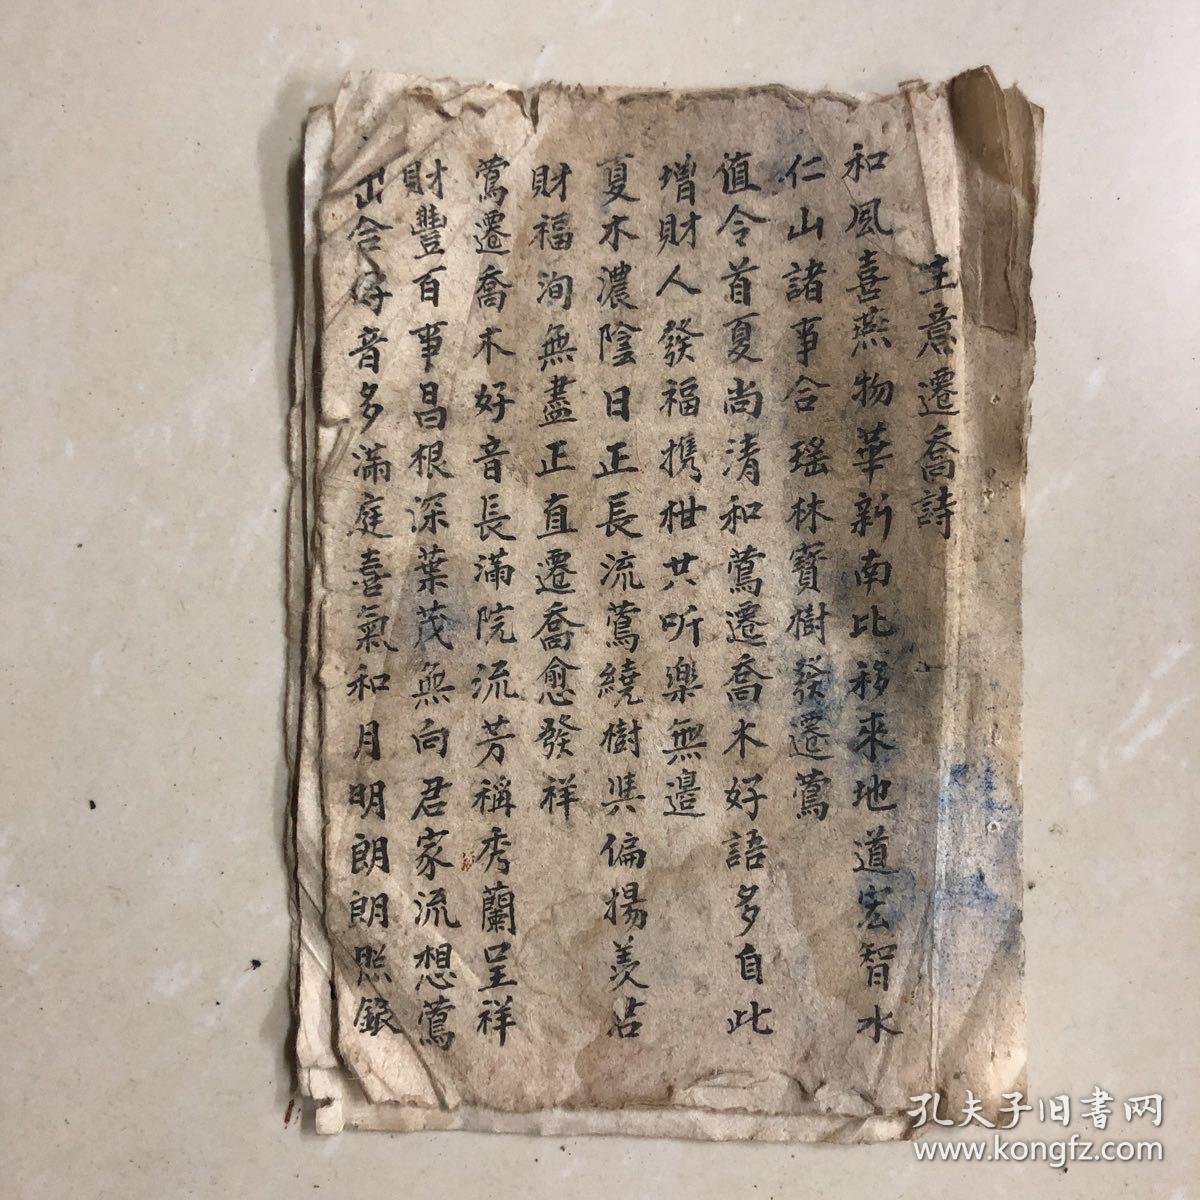 主意遷喬詩
和風喜燕物華新南北移來地道宏智水
仁山諸事合瑤林寶樹發遷鶯
值令首夏尚清和鶯遷喬木好語多自此
增財人發福携柑共听樂無邉
夏木濃陰日正長流鶯繞樹巽偏揚羨占
財福洵無盡正直遷喬愈發祥
鶯遷喬木好音長滿院流芳稱秀蘭呈祥
財豐百事昌根深葉茂無向君家流想鶯
出合好音多滿庭喜氣和月明朗朗照錄
孔夫子旧書网
www.kongfz.com